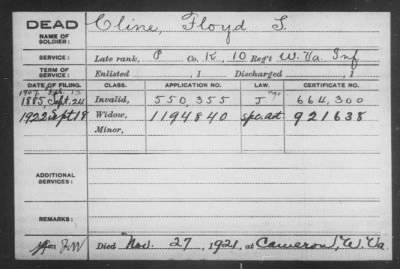 DEAD
NAME OF SOLDIER:
Cline, Floyd S.
SERVICE:
Late rank, P Co. K, 10 Reg't W. Va. Inf
TERM OF SERVICE:
Enlisted , 1 Discharged , 1
DATE OF FILING. CLASS. APPLICATION NO. LAW. CERTIFICATE NO.
1885, Sept. 24 Invalid, 550,355 J 664,300
1922 Sept 18 Widow, 1194840 spc. act 921638
Minor,
ADDITIONAL SERVICES:
REMARKS:
Died Nov. 27, 1921, at Cameron, W. Va.